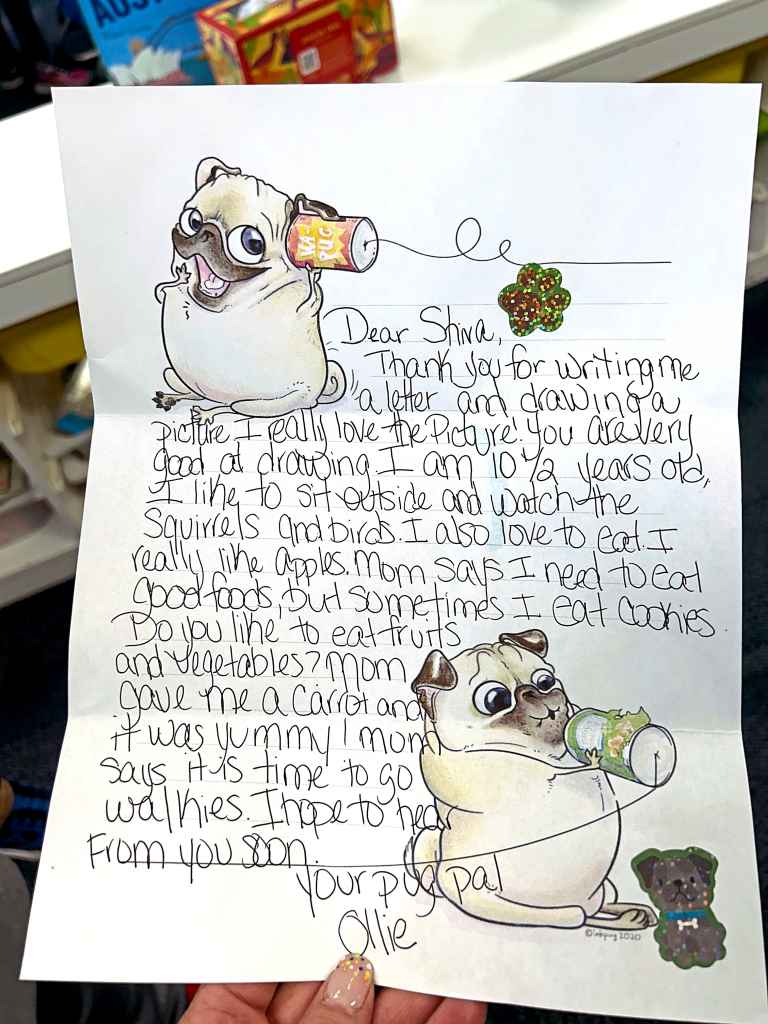 AUS
KA-
PUG
Dear Shiva,
Thank you for writing me
a letter and drawing a
picture I really love the Picture! You are very
good at drawing I am 10 1/2 years old,
I like to sit outside and watch the
squirrels and birds. I also love to eat. I
really like apples. Mom says I need to eat
good foods, but sometimes I eat cookies.
Do you like to eat fruits
and vegetables? Mom
gave me a carrot and
it was yummy! mom
says it is time to go
walkies. I hope to hear
From you soon.
your pug pal
Ollie
©inkpug 2020